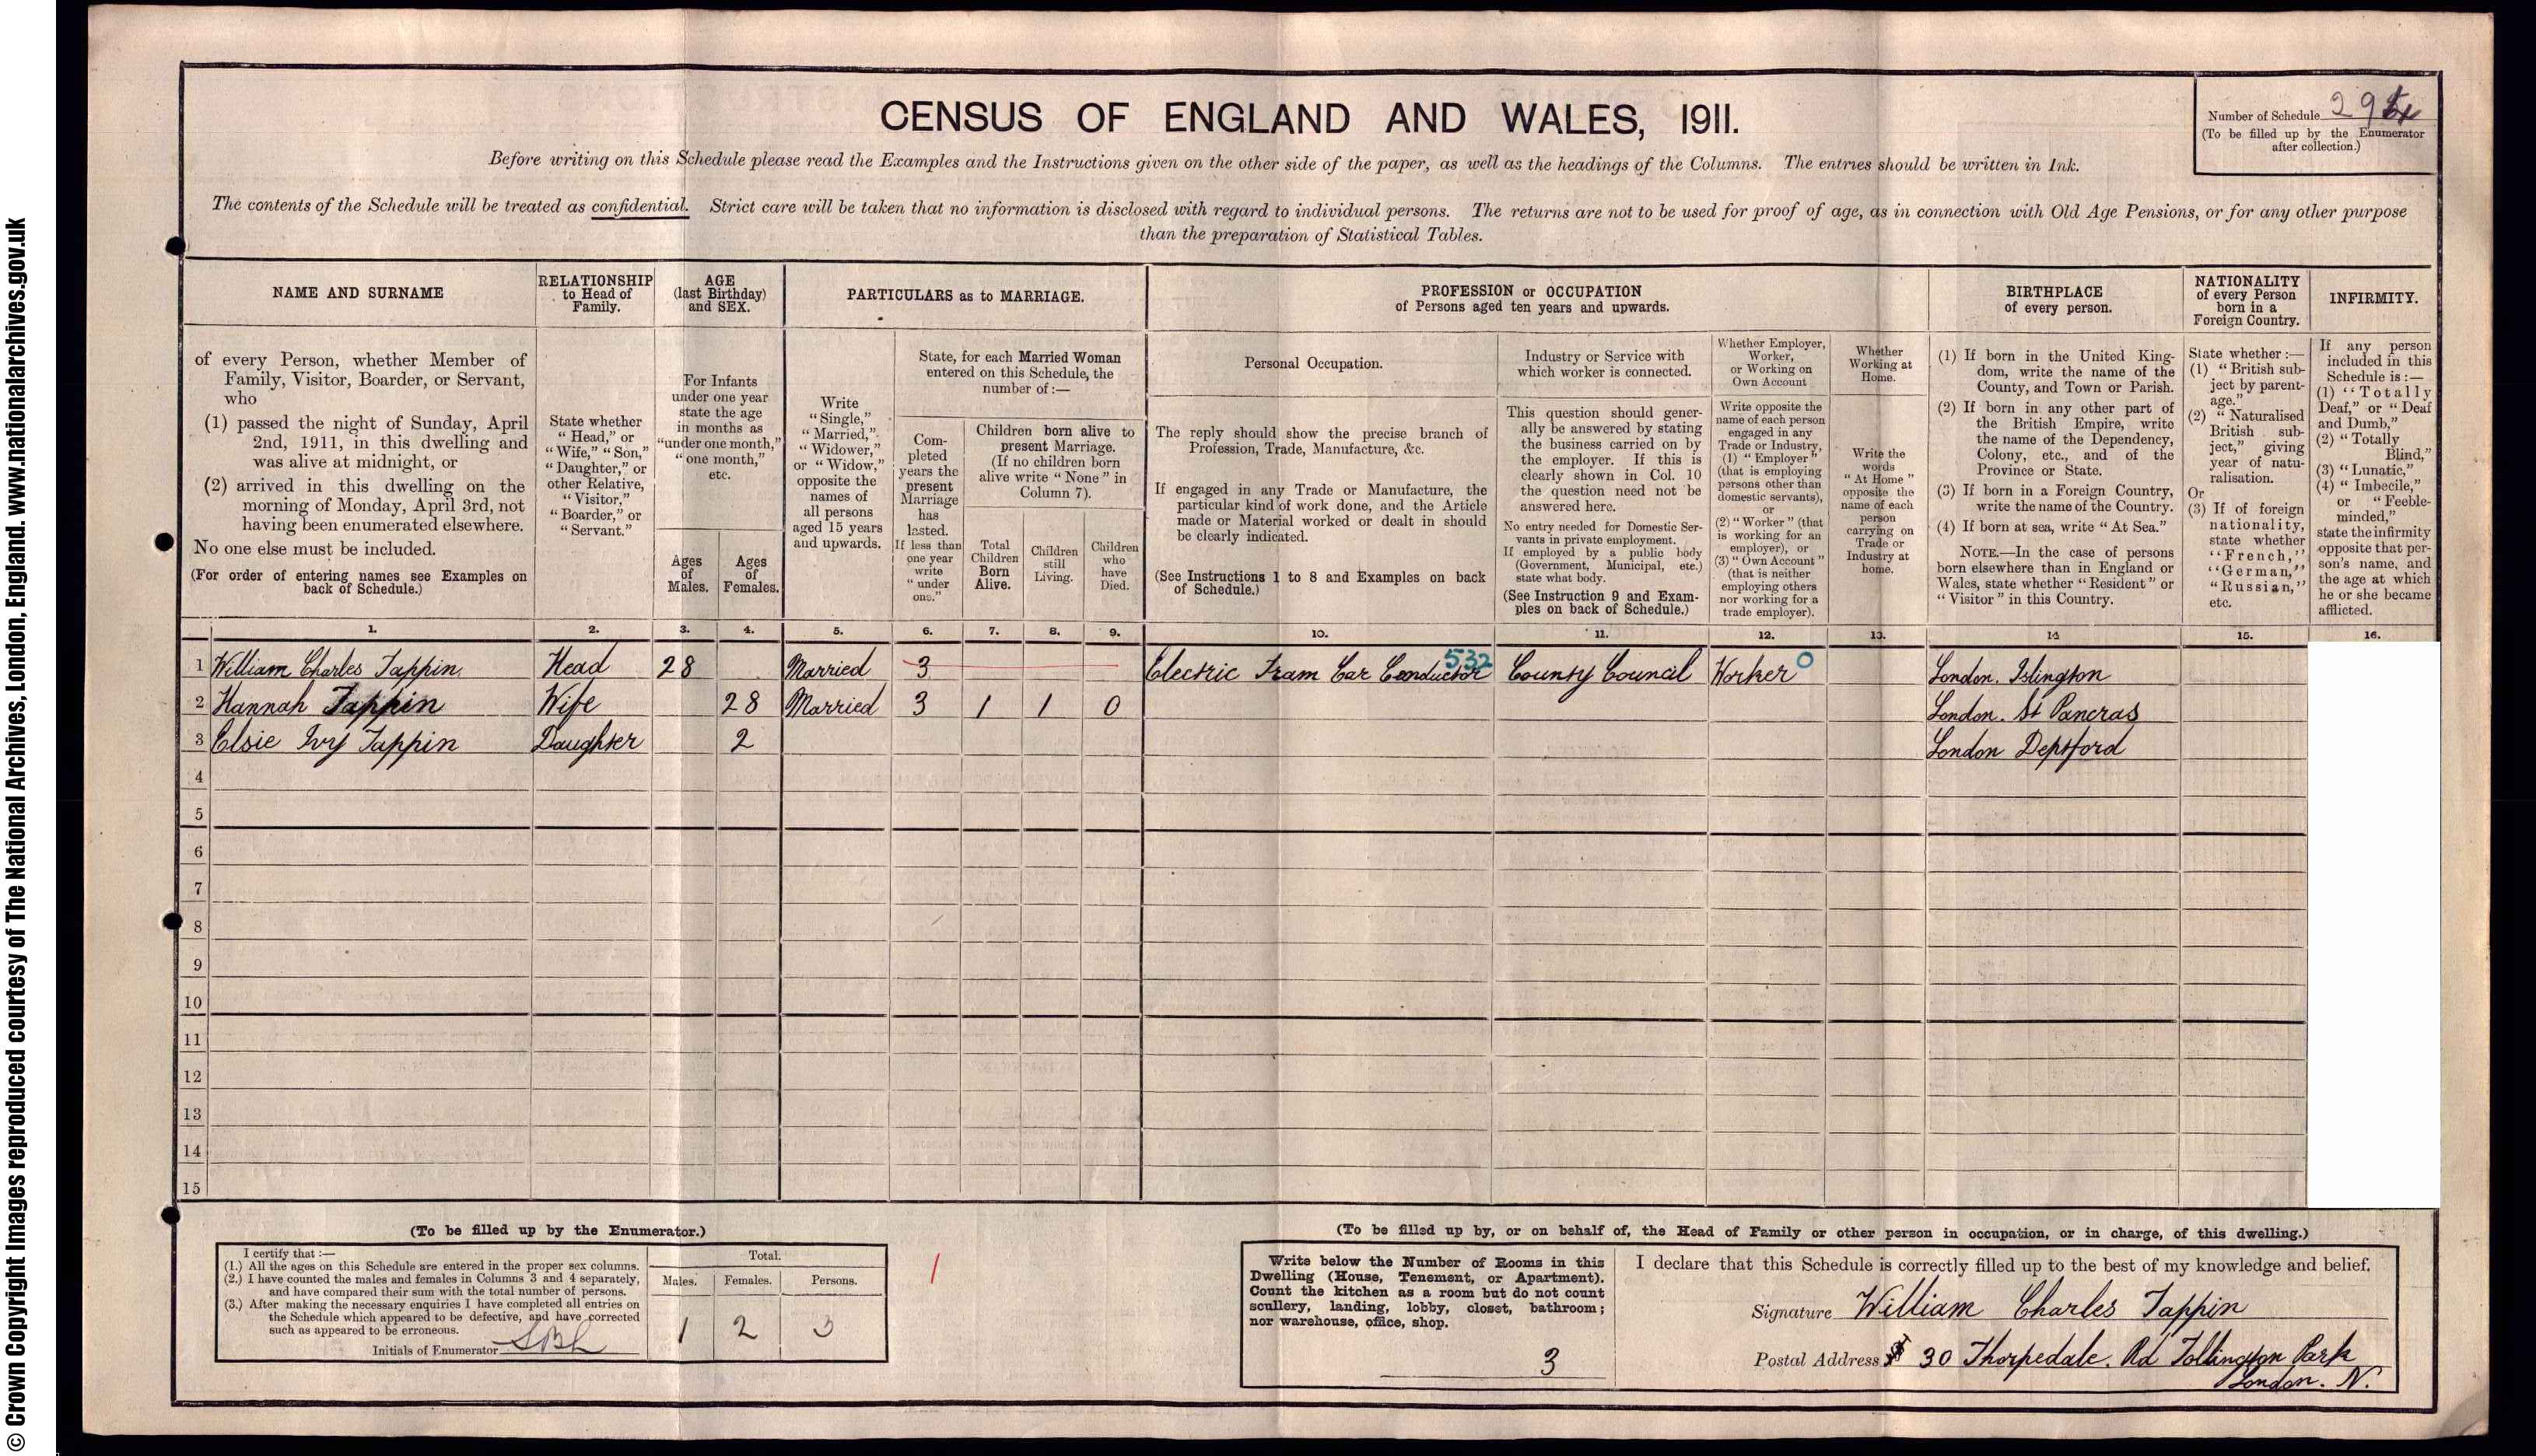 © Crown Copyright Images reproduced courtesy of The National Archives, London, England. www.nationalarchives.gov.uk
CENSUS OF ENGLAND AND WALES, 1911.
Number of Schedule 29
(To be filled up by the Enumerator
after collection.)
Before writing on this Schedule please read the Examples and the Instructions given on the other side of the paper, as well as the headings of the Columns. The entries should be written in Ink.
The contents of the Schedule will be treated as confidential. Strict care will be taken that no information is disclosed with regard to individual persons. The returns are not to be used for proof of age, as in connection with Old Age Pensions, or for any other purpose
than the preparation of Statistical Tables.
NAME AND SURNAME
of every Person, whether Member of
Family, Visitor, Boarder, or Servant,
who
(1) passed the night of Sunday, April
2nd, 1911, in this dwelling and
was alive at midnight, or
(2) arrived in this dwelling on the
morning of Monday, April 3rd, not
having been enumerated elsewhere.
No one else must be included.
(For order of entering names see Examples on
back of Schedule.)
RELATIONSHIP
to Head of
Family.
State whether
"Head," or
"Wife," "Son,"
"Daughter," or
other Relative,
"Visitor,"
"Boarder," or
"Servant."
AGE
(last Birthday)
and SEX.
For Infants
under one year
state the age
in months as
"under one month,"
"one month,"
etc.
Ages
of
Males.
Ages
of
Females.
PARTICULARS as to MARRIAGE.
Write
"Single,"
"Married,"
"Widower,"
or "Widow,"
opposite the
names of
all persons
aged 15 years
and upwards.
State, for each Married Woman
entered on this Schedule, the
number of :—
Com-
pleted
years the
present
Marriage
has
lasted.
If less than
one year
write
"under
one."
Children born alive to
present Marriage.
(If no children born
alive write "None" in
Column 7).
Total
Children
Born
Alive.
Children
still
Living.
Children
who
have
Died.
PROFESSION or OCCUPATION
of Persons aged ten years and upwards.
Personal Occupation.
The reply should show the precise branch of
Profession, Trade, Manufacture, &c.
If engaged in any Trade or Manufacture, the
particular kind of work done, and the Article
made or Material worked or dealt in should
be clearly indicated.
(See Instructions 1 to 8 and Examples on back
of Schedule.)
Industry or Service with
which worker is connected.
This question should gener-
ally be answered by stating
the business carried on by
the employer. If this is
clearly shown in Col. 10
the question need not be
answered here.
No entry needed for Domestic Ser-
vants in private employment.
If employed by a public body
(Government, Municipal, etc.)
state what body.
(See Instruction 9 and Exam-
ples on back of Schedule.)
Whether Employer,
Worker,
or Working on
Own Account
Write opposite the
name of each person
engaged in any
Trade or Industry,
(1) "Employer"
(that is employing
persons other than
domestic servants),
or
(2) "Worker" (that
is working for an
employer), or
(3) "Own Account"
(that is neither
employing others
nor working for a
trade employer).
Whether
Working at
Home.
Write the
words
"At Home"
opposite the
name of each
person
carrying on
Trade or
Industry at
home.
BIRTHPLACE
of every person.
(1) If born in the United King-
dom, write the name of the
County, and Town or Parish.
(2) If born in any other part of
the British Empire, write
the name of the Dependency,
Colony, etc., and of the
Province or State.
(3) If born in a Foreign Country,
write the name of the Country.
(4) If born at sea, write "At Sea."
NOTE.—In the case of persons
born elsewhere than in England or
Wales, state whether "Resident" or
"Visitor" in this Country.
NATIONALITY
of every Person
born in a
Foreign Country.
State whether :—
(1) "British sub-
ject by parent-
age."
(2) "Naturalised
British sub-
ject," giving
year of natu-
ralisation.
Or
(3) If of foreign
nationality,
state whether
"French,"
"German,"
"Russian,"
etc.
INFIRMITY.
If any person
included in this
Schedule is :—
(1) "Totally
Deaf," or "Deaf
and Dumb,"
(2) "Totally
Blind,"
(3) "Lunatic,"
(4) "Imbecile,"
or "Feeble-
minded,"
state the infirmity
opposite that per-
son's name, and
the age at which
he or she became
afflicted.
1. 2. 3. 4. 5. 6. 7. 8. 9. 10. 11. 12. 13. 14 15. 16.
1 William Charles Tappin Head 28 Married 3 Electric Tram Car Conductor 532 County Council Worker 0 London. Islington
2 Hannah Tappin Wife 28 Married 3 1 1 0 London. St Pancras
3 Elsie Ivy Tappin Daughter 2 London Deptford
4
5
6
7
8
9
10
11
12
13
14
15
(To be filled up by the Enumerator.)
I certify that :—
(1.) All the ages on this Schedule are entered in the proper sex columns.
(2.) I have counted the males and females in Columns 3 and 4 separately,
and have compared their sum with the total number of persons.
(3.) After making the necessary enquiries I have completed all entries on
the Schedule which appeared to be defective, and have corrected
such as appeared to be erroneous.
Initials of Enumerator
Total.
Males. Females. Persons.
1 2 3
(To be filled up by, or on behalf of, the Head of Family or other person in occupation, or in charge, of this dwelling.)
Write below the Number of Rooms in this
Dwelling (House, Tenement, or Apartment).
Count the kitchen as a room but do not count
scullery, landing, lobby, closet, bathroom;
nor warehouse, office, shop.
3
I declare that this Schedule is correctly filled up to the best of my knowledge and belief.
Signature William Charles Tappin
Postal Address 30 Thorpedale. Rd Tollington Park
London. N.